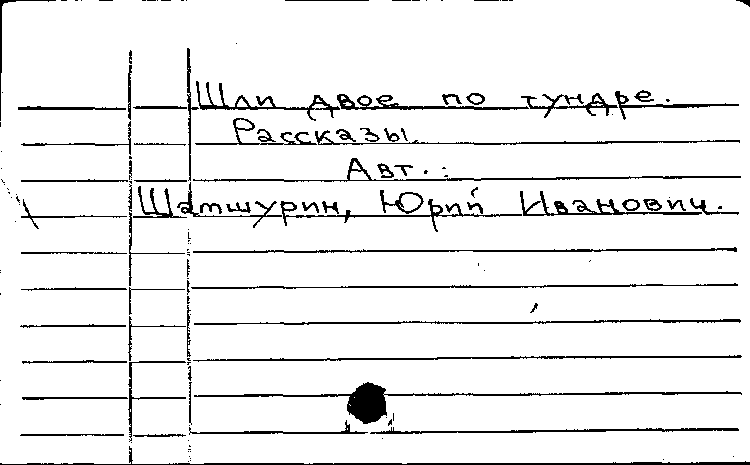 Шли двое по тундре.
Рассказы.
Авт.:
Шамшурин, Юрий Иванович.